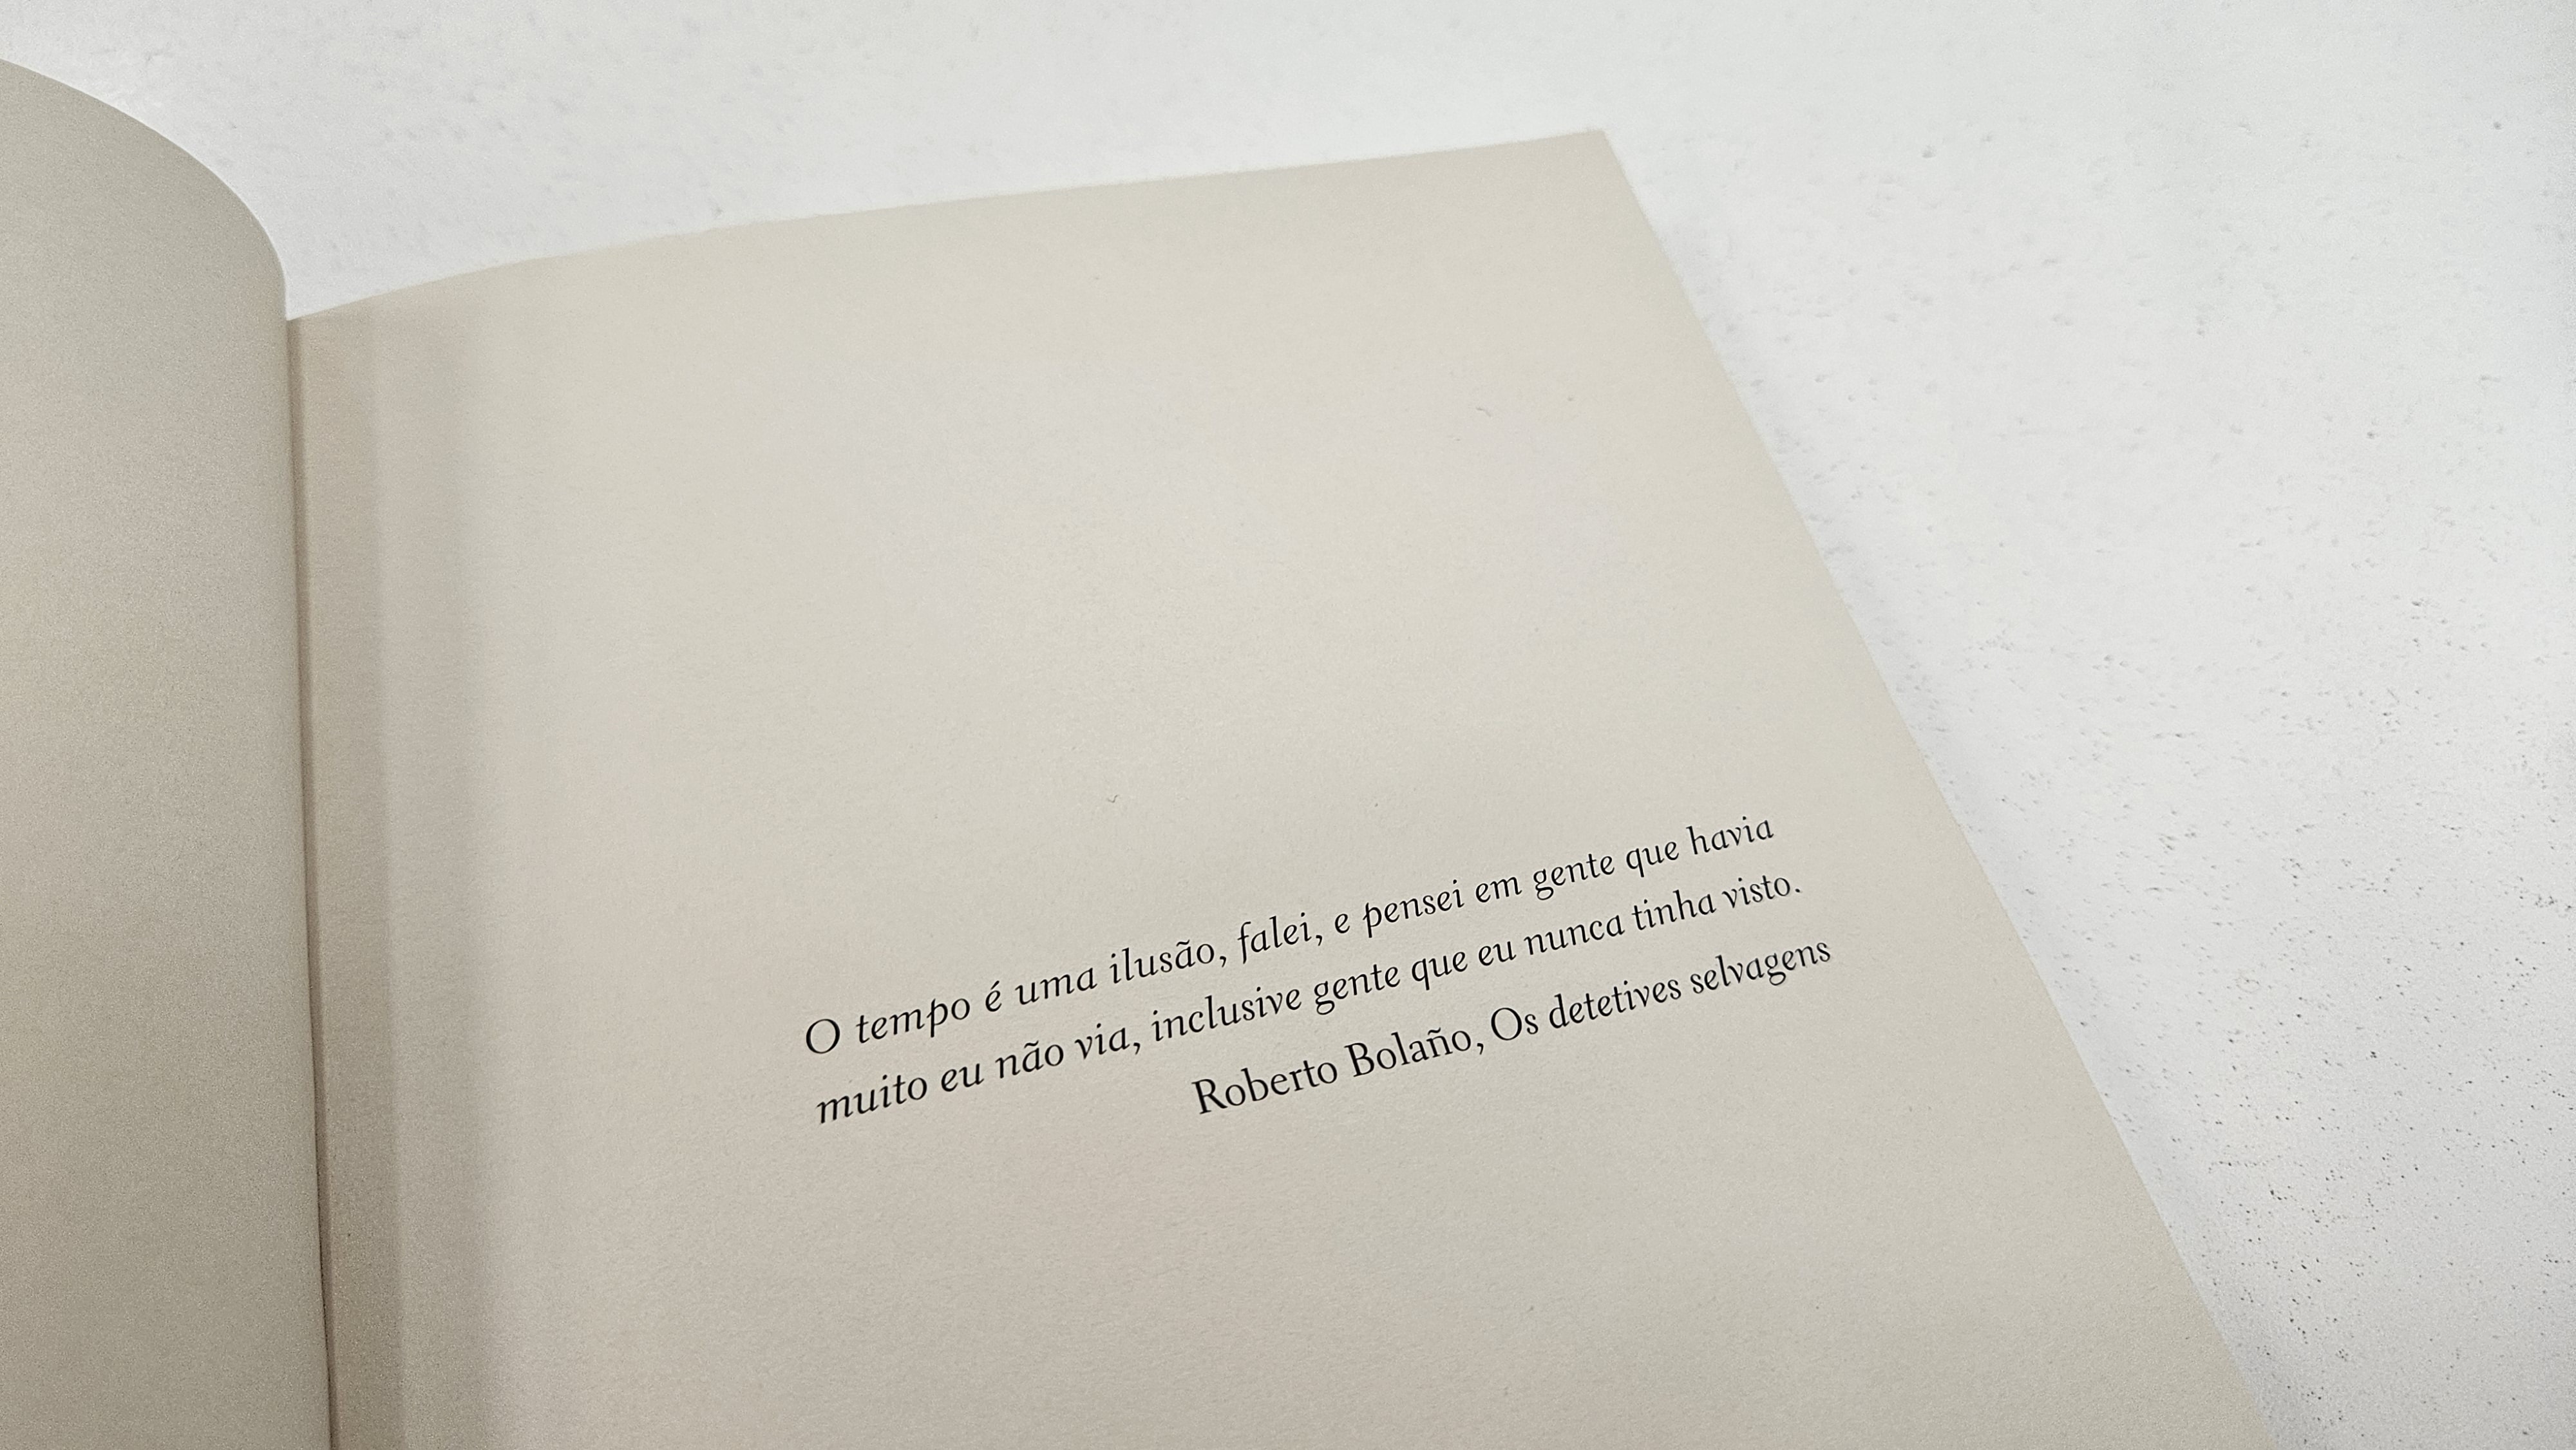 O tempo é uma ilusão, falei, e pensei em gente que havia
muito eu não via, inclusive gente que eu nunca tinha visto.
Roberto Bolaño, Os detetives selvagens